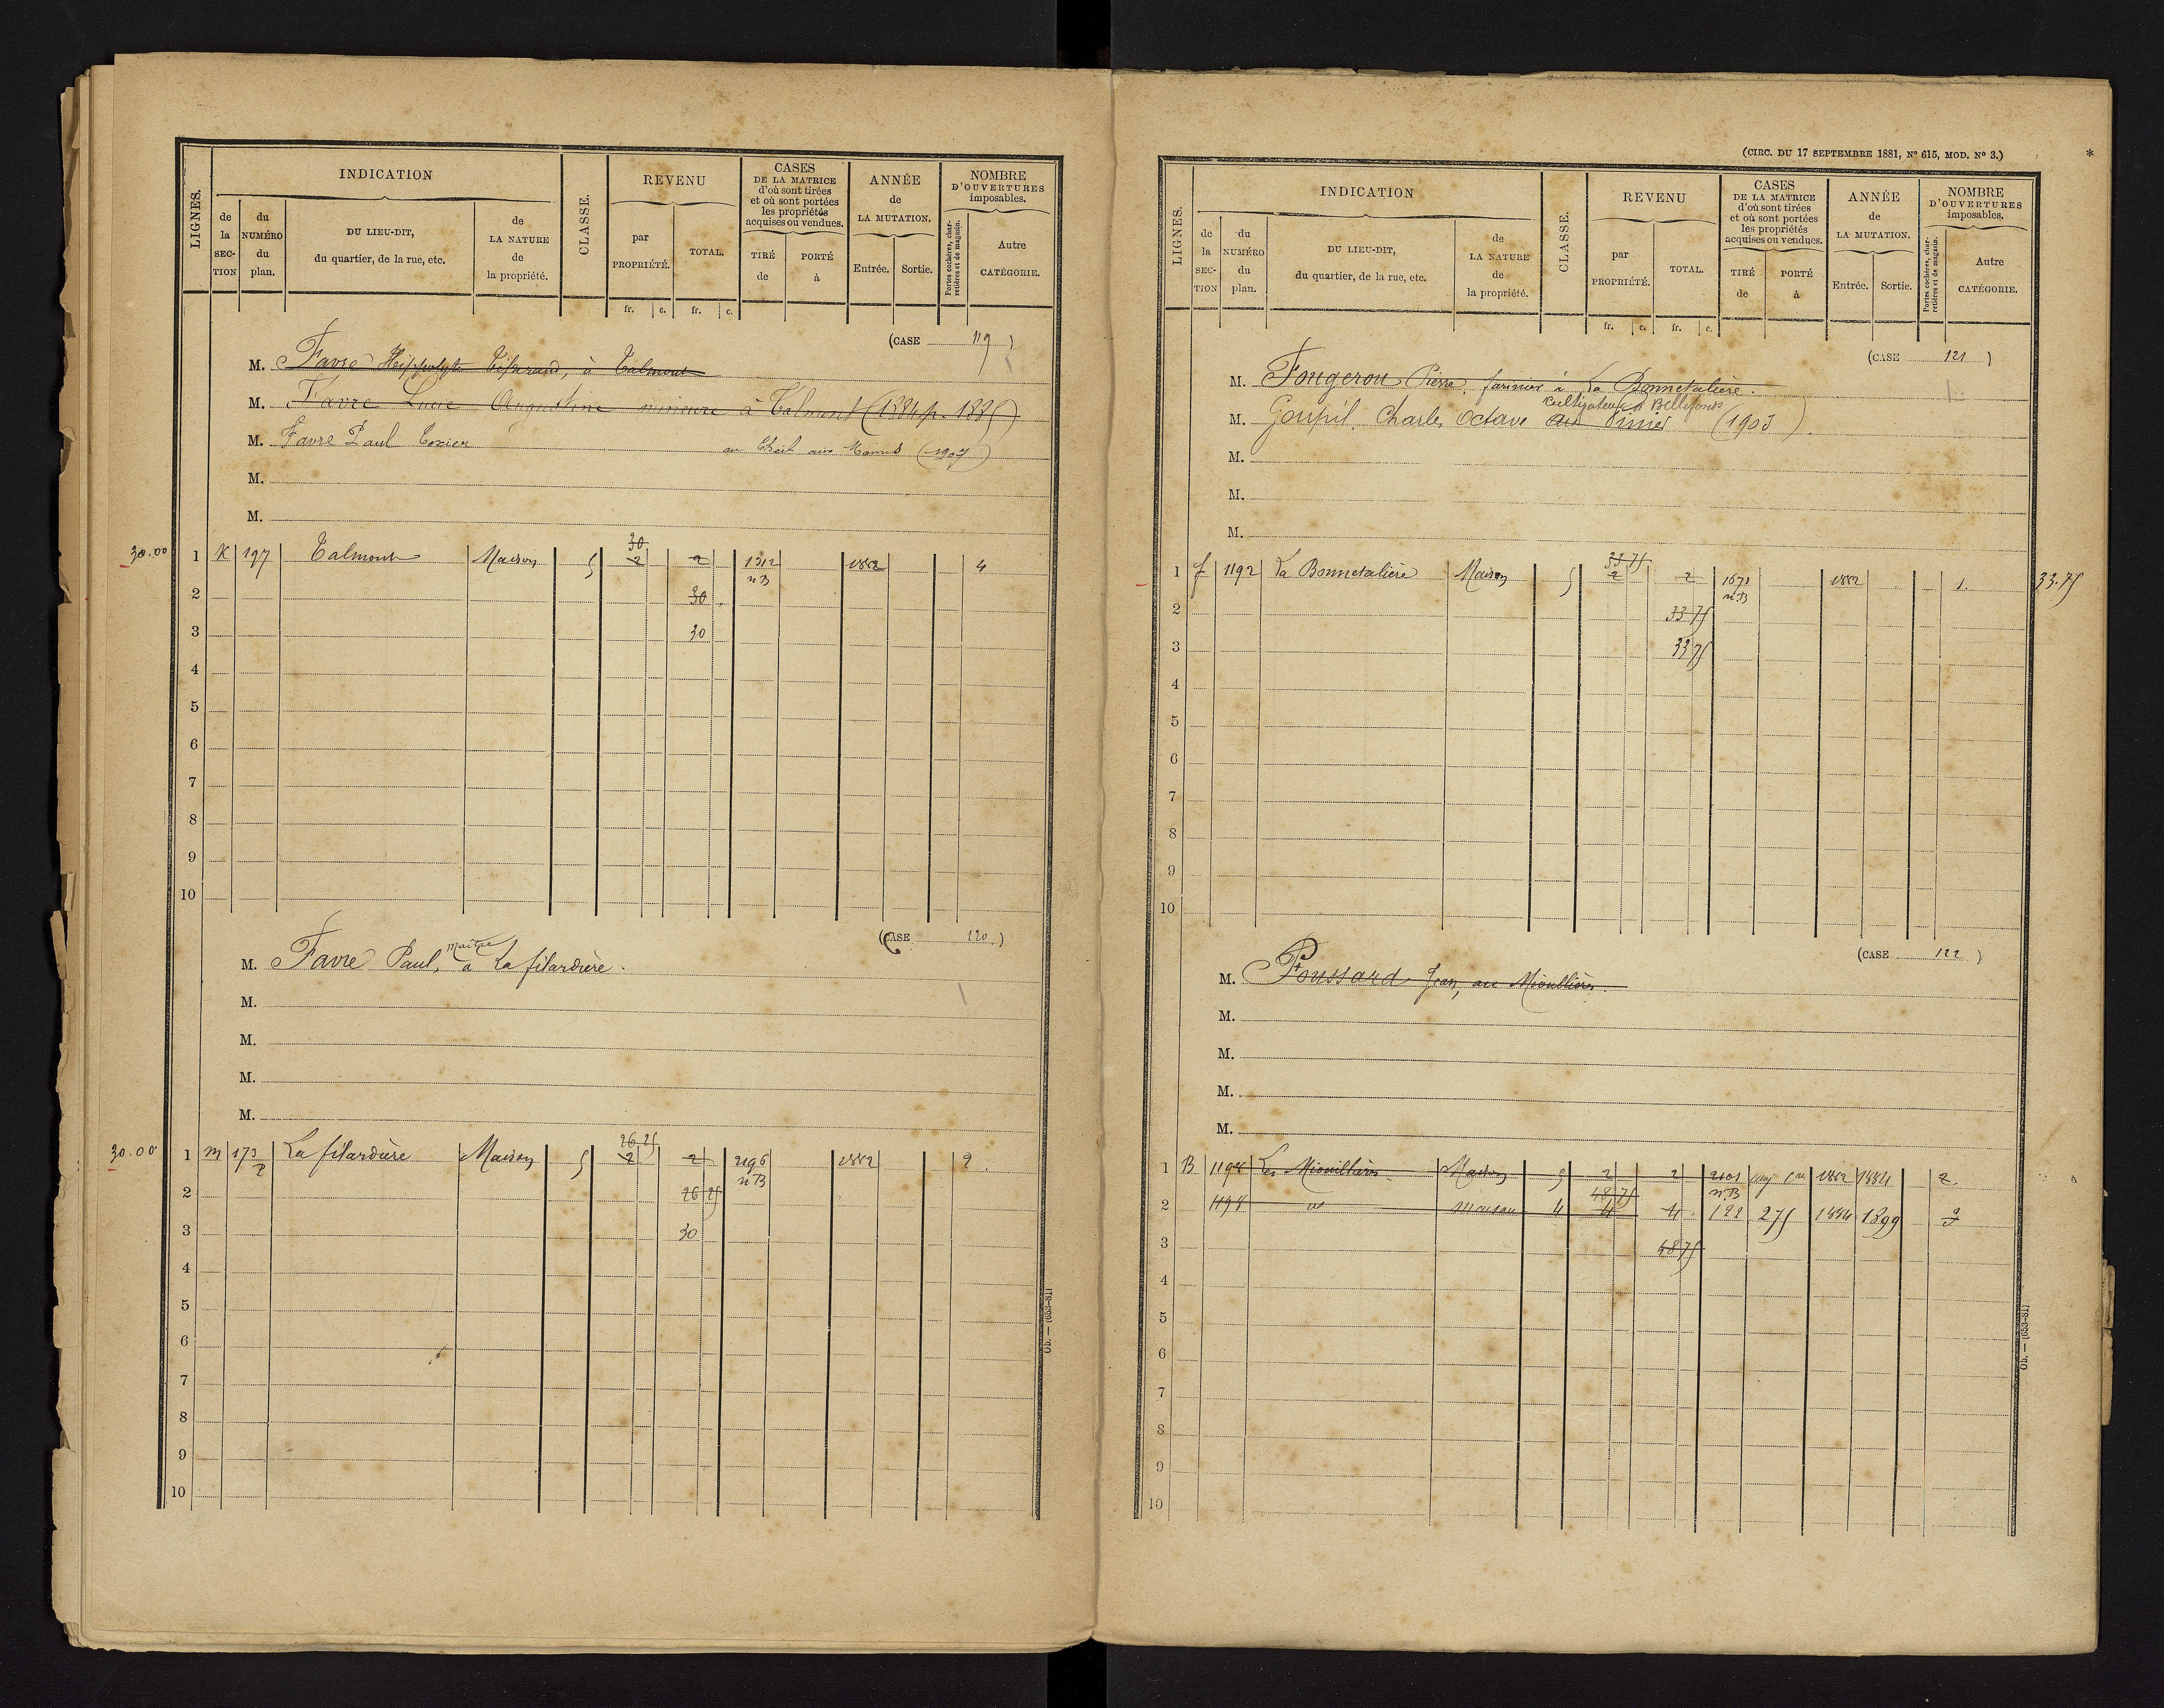 LIGNES.
INDICATION
de la SECTION
du NUMÉRO du plan.
DU LIEU-DIT, du quartier, de la rue, etc.
de LA NATURE de la propriété.
CLASSE.
REVENU
par PROPRIÉTÉ.
TOTAL.
fr. c. fr. c.
CASES DE LA MATRICE d'où sont tirées et où sont portées les propriétés acquises ou vendues.
TIRÉ de
PORTÉ à
ANNÉE de LA MUTATION.
Entrée. Sortie.
NOMBRE D'OUVERTURES imposables.
Portes cochères, charretières et de magasin.
Autre CATÉGORIE.
(CASE 119)
M. Favre Hippolyte à Talmont
M. Favre Lucie Augustine mineure à Talmont (1884 p. 1885)
M. Favre Paul au aux (1907)
M.
M.
30.00 1 K 197 Talmont Maison 5 30 2 2 1312 n B 1882 4
2 30
3 30
4
5
6
7
8
9
10
(CASE 120.)
M. Favre Paul, maître à La filardière.
M.
M.
M.
M.
30.00 1 m 173 p La filardière Maison 5 26 25 2 2 2196 n B 1882 2.
2 26 25
3 30
4
5
6
7
8
9
10
Ob. — (653-81)
(CIRC. DU 17 SEPTEMBRE 1881, Nº 615, MOD. Nº 3.)
*
LIGNES.
INDICATION
de la SECTION
du NUMÉRO du plan.
DU LIEU-DIT, du quartier, de la rue, etc.
de LA NATURE de la propriété.
CLASSE.
REVENU
par PROPRIÉTÉ.
TOTAL.
fr. c. fr. c.
CASES DE LA MATRICE d'où sont tirées et où sont portées les propriétés acquises ou vendues.
TIRÉ de
PORTÉ à
ANNÉE de LA MUTATION.
Entrée. Sortie.
NOMBRE D'OUVERTURES imposables.
Portes cochères, charretières et de magasin.
Autre CATÉGORIE.
(CASE 121)
M. Fougerou Pierre, farinier à La Bonnetalière.
cultivateur à Bellefonds
M. Goupil Charles Octave (1903)
M.
M.
M.
1 f 1192 La Bonnetalière Maison 5 33 75 2 2 1671 n B 1882 1. 33.75
2 33 75
3 33 75
4
5
6
7
8
9
10
(CASE 122)
M. Poussard Jean, au Mioullières.
M.
M.
M.
M.
1 B 1198 Les Mioullières Maison 5 2 2 2101 n B 1882 1884 2
2 1198 id maison 4 48 75 4 4 122 275 1884 1899
3 48 75
4
5
6
7
8
9
10
Ob. — (653-81)